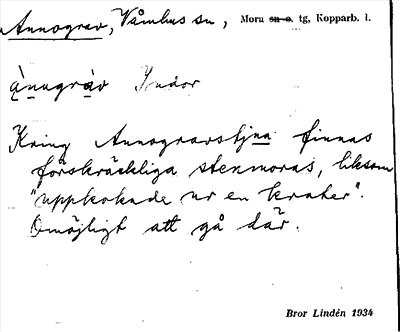 Annograv, Våmhus sn, Mora sn o. tg, Kopparb. l.
ànngràv Indor
Kring Annogravstjna finnas
förskräckliga stenmoras, liksom
"uppkokade ur en krater".
Omöjligt att gå där.
Bror Lindén 1934